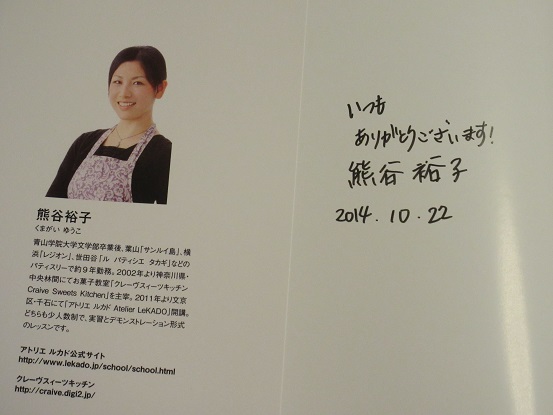 熊谷裕子
くまがい ゆうこ
青山学院大学文学部卒業後、葉山「サンルイ島」、横
浜「レジオン」、世田谷「ル パティシエ タカギ」などの
パティスリーで約9年勤務。2002年より神奈川県・
中央林間にてお菓子教室「クレーヴスィーツキッチン
Craive Sweets Kitchen」を主宰。2011年より文京
区・千石にて「アトリエ ルカド Atelier LeKADO」開講。
どちらも少人数制で、実習とデモンストレーション形式
のレッスンです。
アトリエ ルカド公式サイト
http://www.lekado.jp/school/school.html
クレーヴスィーツキッチン
http://craive.digi2.jp/
いつも
ありがとうございます!
熊谷 裕子
2014.10.22